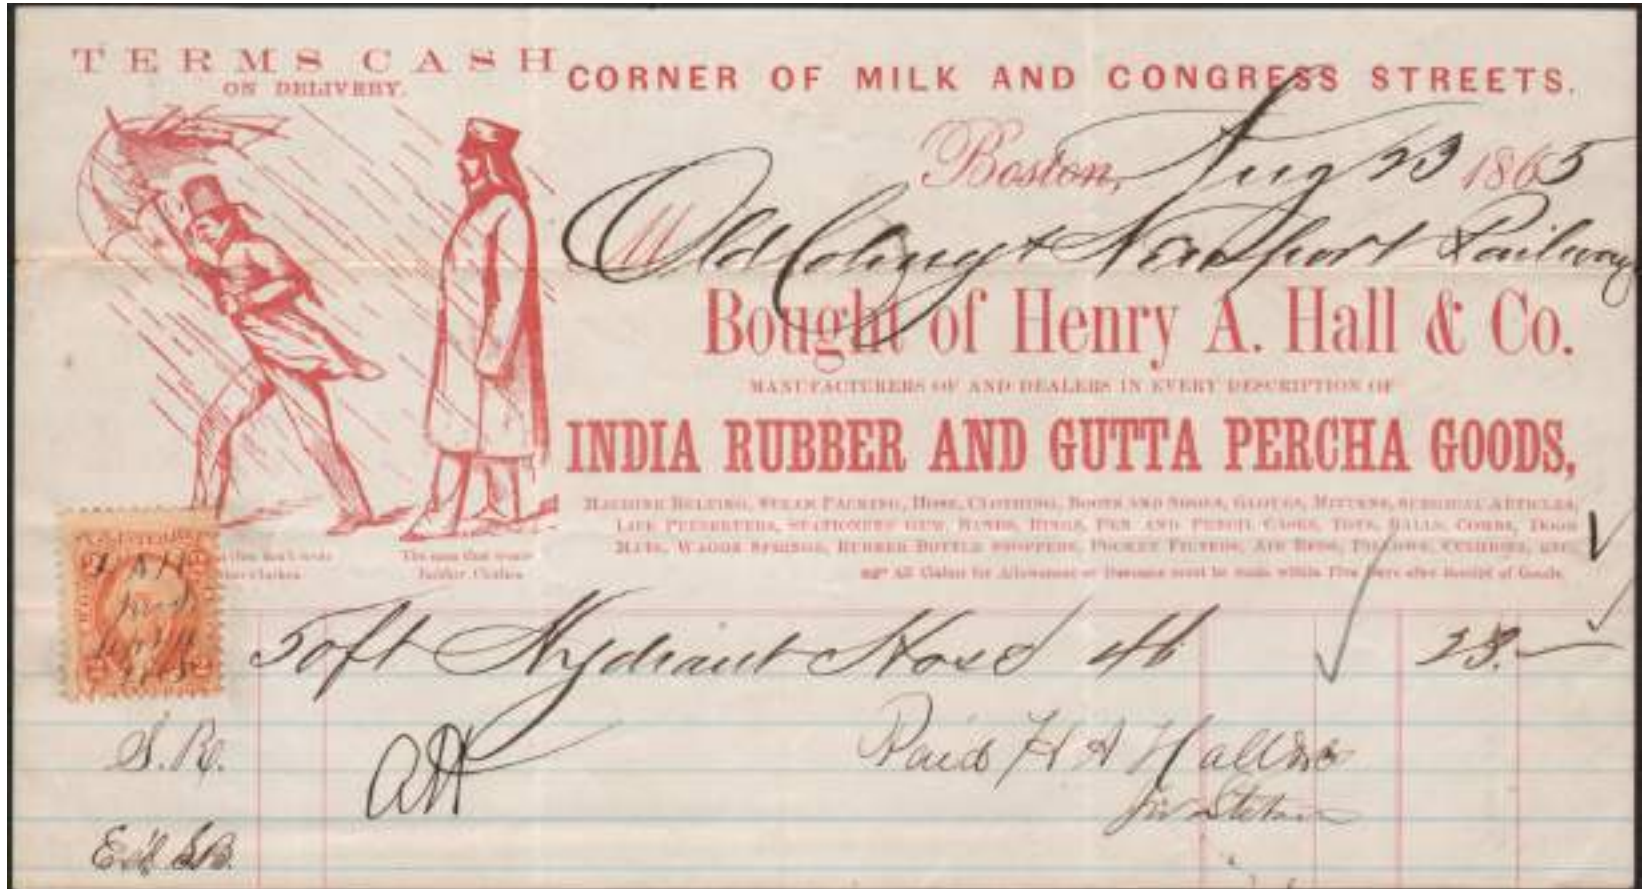 TERMS CASH
ON DELIVERY.
CORNER OF MILK AND CONGRESS STREETS.
Boston, Aug 23 1865
M Old Colony & Newport Railway
Bought of Henry A. Hall & Co.
MANUFACTURERS OF AND DEALERS IN EVERY DESCRIPTION OF
INDIA RUBBER AND GUTTA PERCHA GOODS,
MACHINE BELTING, STEAM PACKING, HOSE, CLOTHING, BOOTS AND SHOES, GLOVES, MITTENS, SURGICAL ARTICLES,
LIFE PRESERVERS, STATIONERS GUM, BANDS, RINGS, PEN AND PENCIL CASES, TOYS, BALLS, COMBS, DOOR
MATS, WAGON SPRINGS, RUBBER BOTTLE STOPPERS, POCKET FILTERS, AIR BEDS, PILLOWS, CUSHIONS, ETC.
All Claims for Allowance or Damages must be made within Five Days after Receipt of Goods.
that don't wear
The man that wears
Rubber Clothes
50 ft Hydrant Hose 46 23.—
Paid H A Hall & Co